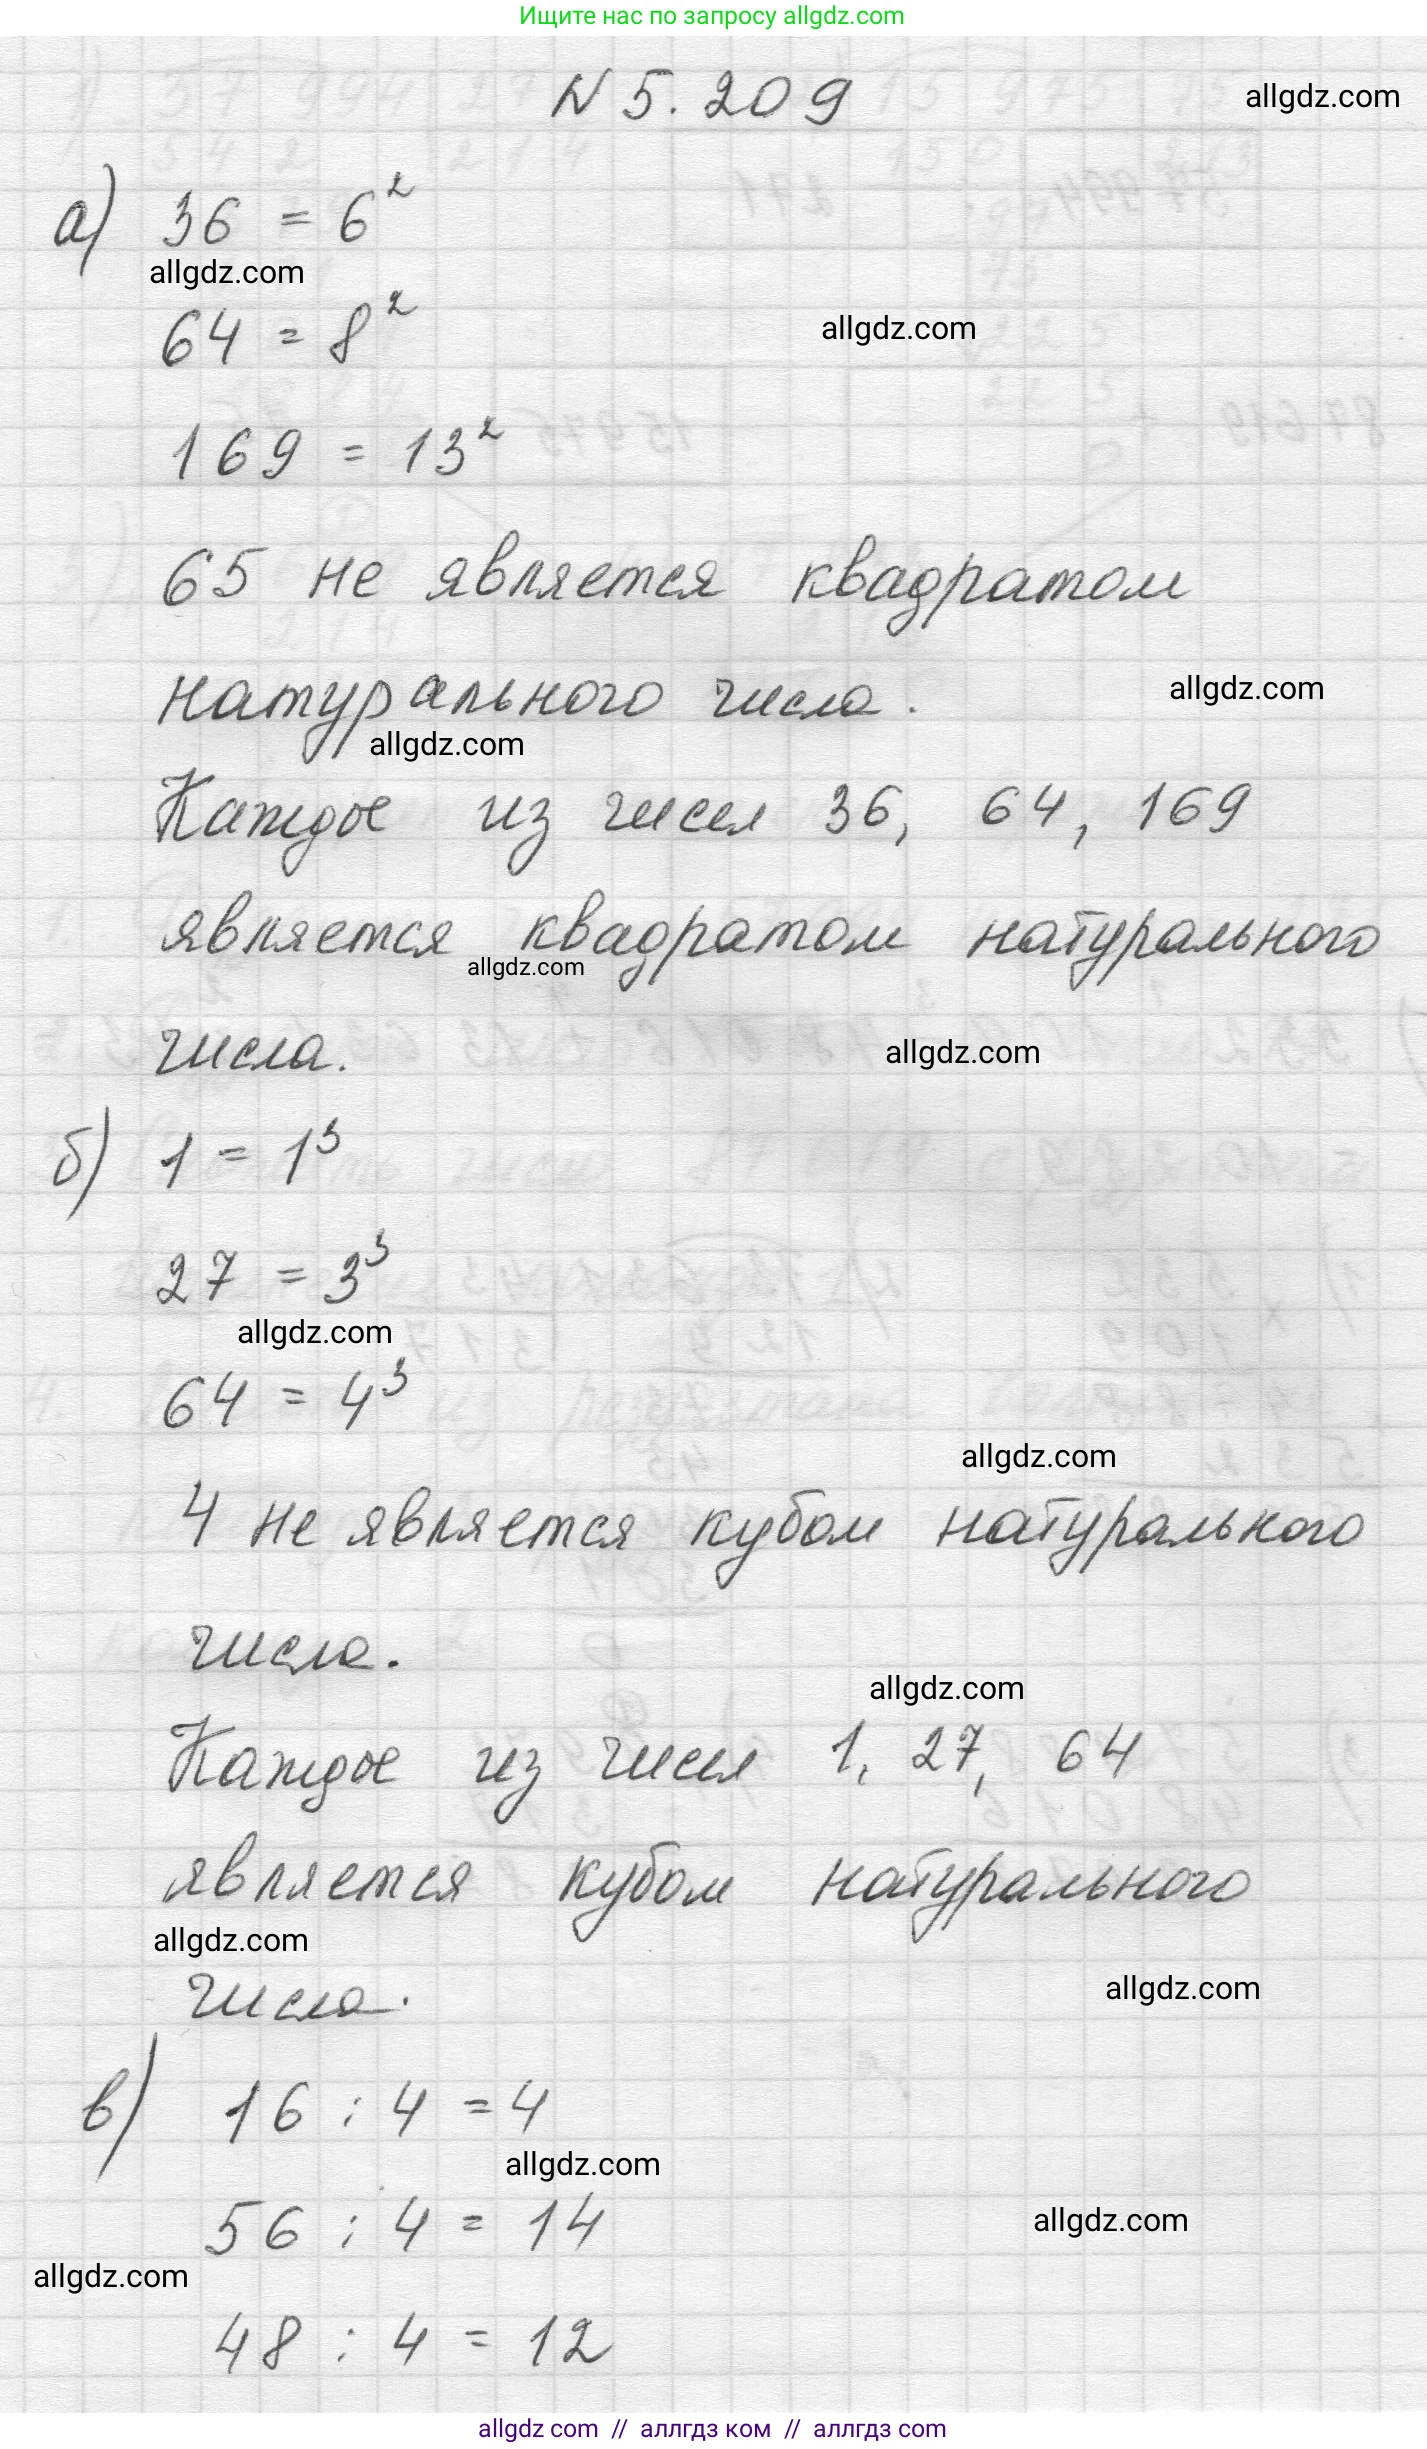 Ищите нас по запросу allgdz.com
N 5.209
allgdz.com
а) 36 = 6²
allgdz.com
64 = 8²
allgdz.com
169 = 13²
65 не является квадратом
натурального числа.
allgdz.com
allgdz.com
Каждое из чисел 36, 64, 169
является квадратом натурального
allgdz.com
числа.
allgdz.com
б) 1 = 1³
27 = 3³
allgdz.com
64 = 4³
allgdz.com
4 не является кубом натурального
числа.
allgdz.com
Каждое из чисел 1, 27, 64
является кубом натурального
allgdz.com
числа.
allgdz.com
в) 16 : 4 = 4
allgdz.com
56 : 4 = 14
allgdz.com
allgdz.com
48 : 4 = 12
allgdz com // аллгдз ком // аллгдз com